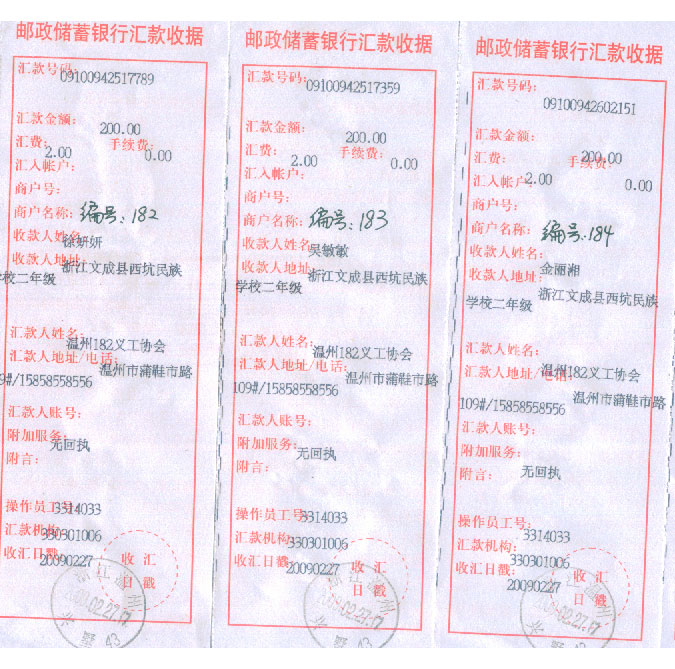 邮政储蓄银行汇款收据
汇款号码:
09100942517789
汇款金额:
200.00
汇费:
手续费:
2.00
0.00
汇入帐户:
商户号:
商户名称:
编号:182
收款人姓名
徐妍妍
收款人地址
浙江文成县西坑民族
学校二年级
汇款人姓名:
温州182义工协会
汇款人地址/电话:
温州市蒲鞋市路
9#/15858558556
汇款人账号:
附加服务:
无回执
附言:
操作员工号
3314033
汇款机构:
330301006
收汇日戳
20090227
收汇
日戳
邮政储蓄银行汇款收据
汇款号码:
09100942517359
汇款金额:
200.00
汇费:
手续费:
2.00
0.00
汇入帐户:
商户号:
商户名称:
编号:183
收款人姓名
吴敏敏
收款人地址
浙江文成县西坑民族
学校二年级
汇款人姓名:
温州182义工协会
汇款人地址/电话:
温州市蒲鞋市路
109#/15858558556
汇款人账号:
附加服务:
无回执
附言:
操作员工号
3314033
汇款机构:
330301006
收汇日戳
20090227
收汇
日戳
邮政储蓄银行汇款收据
汇款号码:
09100942602151
汇款金额:
200.00
汇费:
手续费:
2.00
0.00
汇入帐户
商户号:
商户名称:
编号:184
收款人姓名:
金丽湘
收款人地址:
浙江文成县西坑民族
学校二年级
汇款人姓名:
温州182义工协会
汇款人地址/电话:
温州市蒲鞋市路
109#/15858558556
汇款人账号:
附加服务:
无回执
附言:
操作员工号:
3314033
汇款机构:
330301006
收汇日戳:
20090227
收汇
日戳